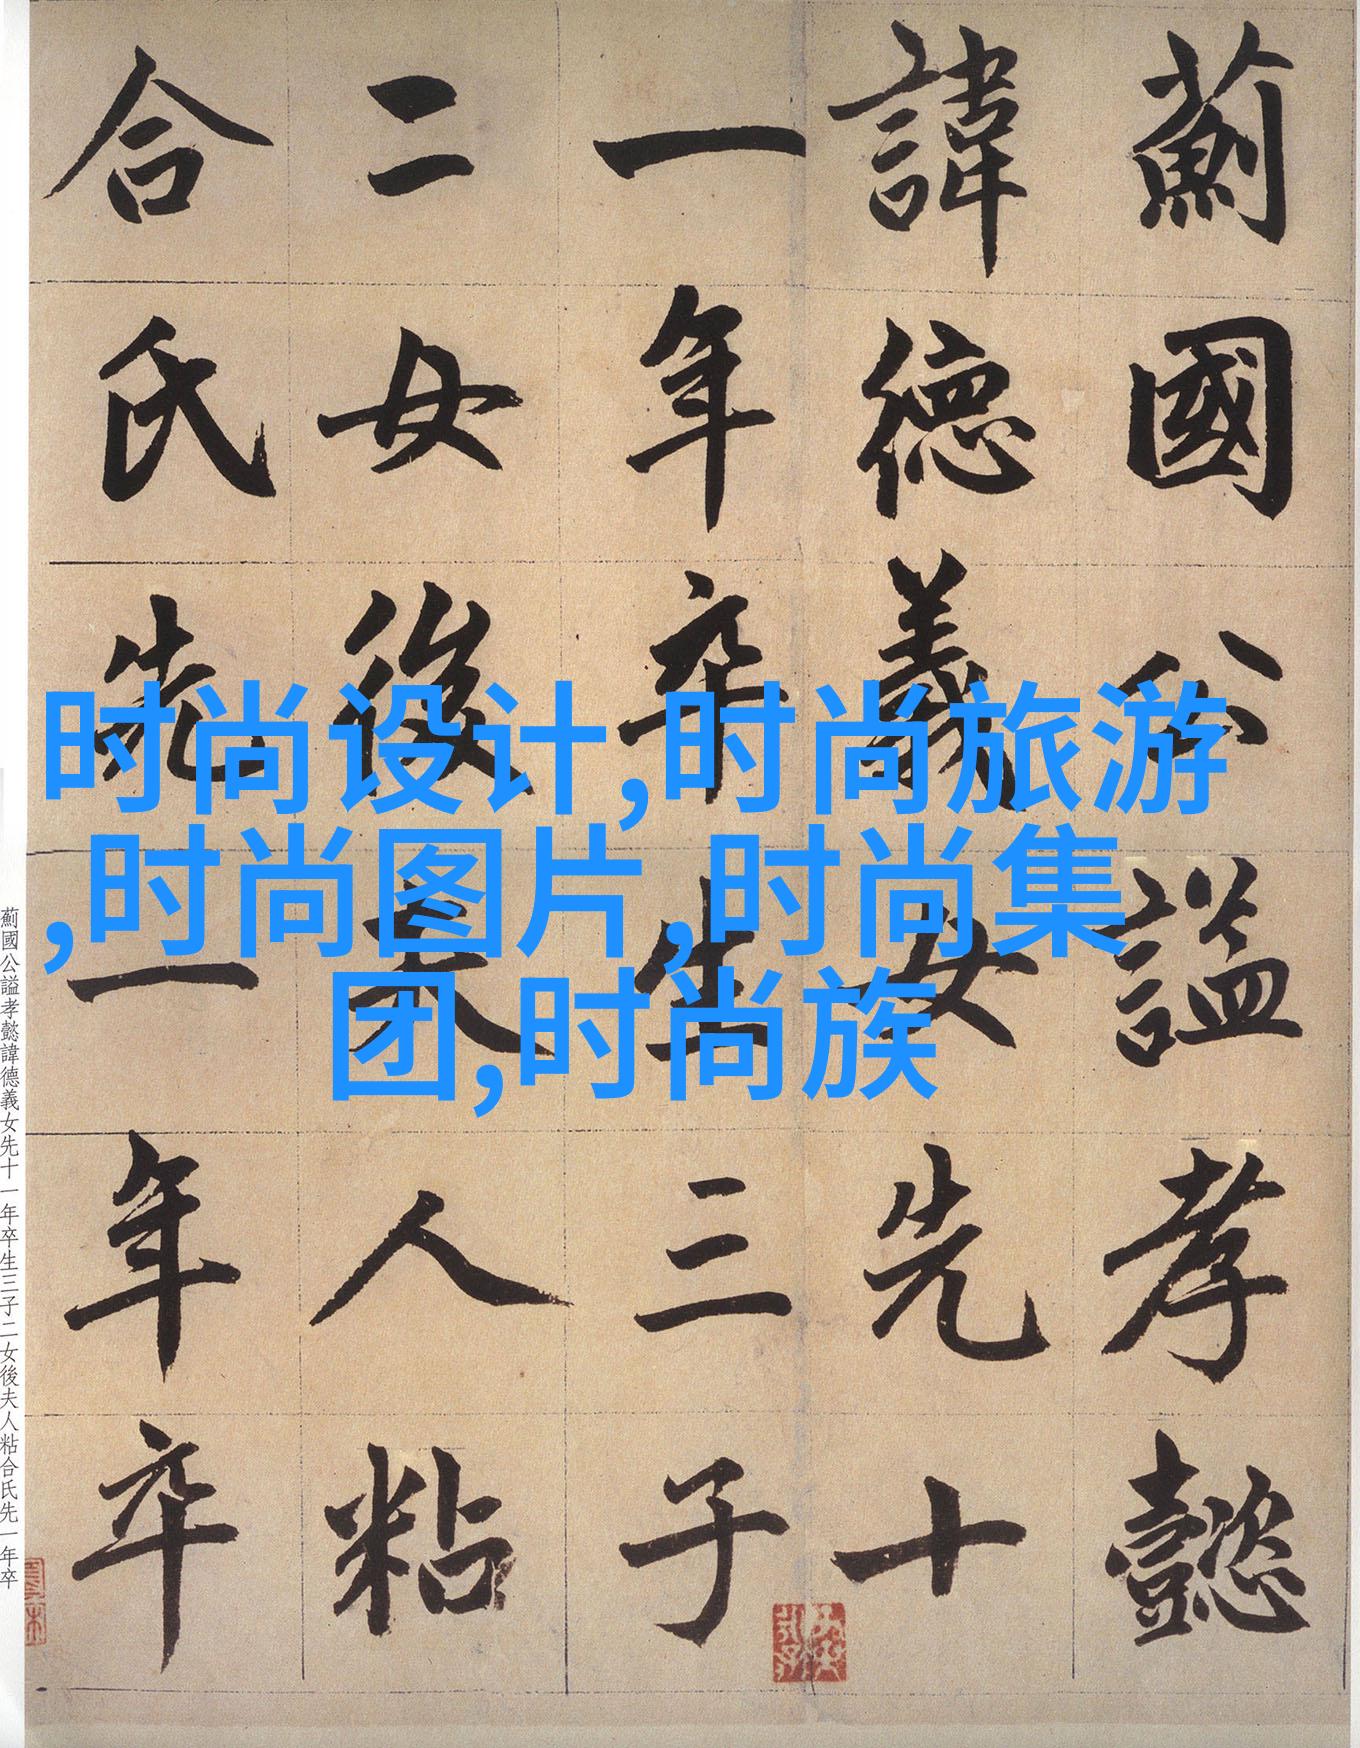 薊國公謚孝懿
諱德義女先十
一年卒生三子
二女後夫人粘
合氏先一年卒
时尚设计,时尚旅游
,时尚图片,时尚集
团,时尚族
薊國公謚孝懿諱德義女先十一年卒生三子二女後夫人粘合氏先一年卒